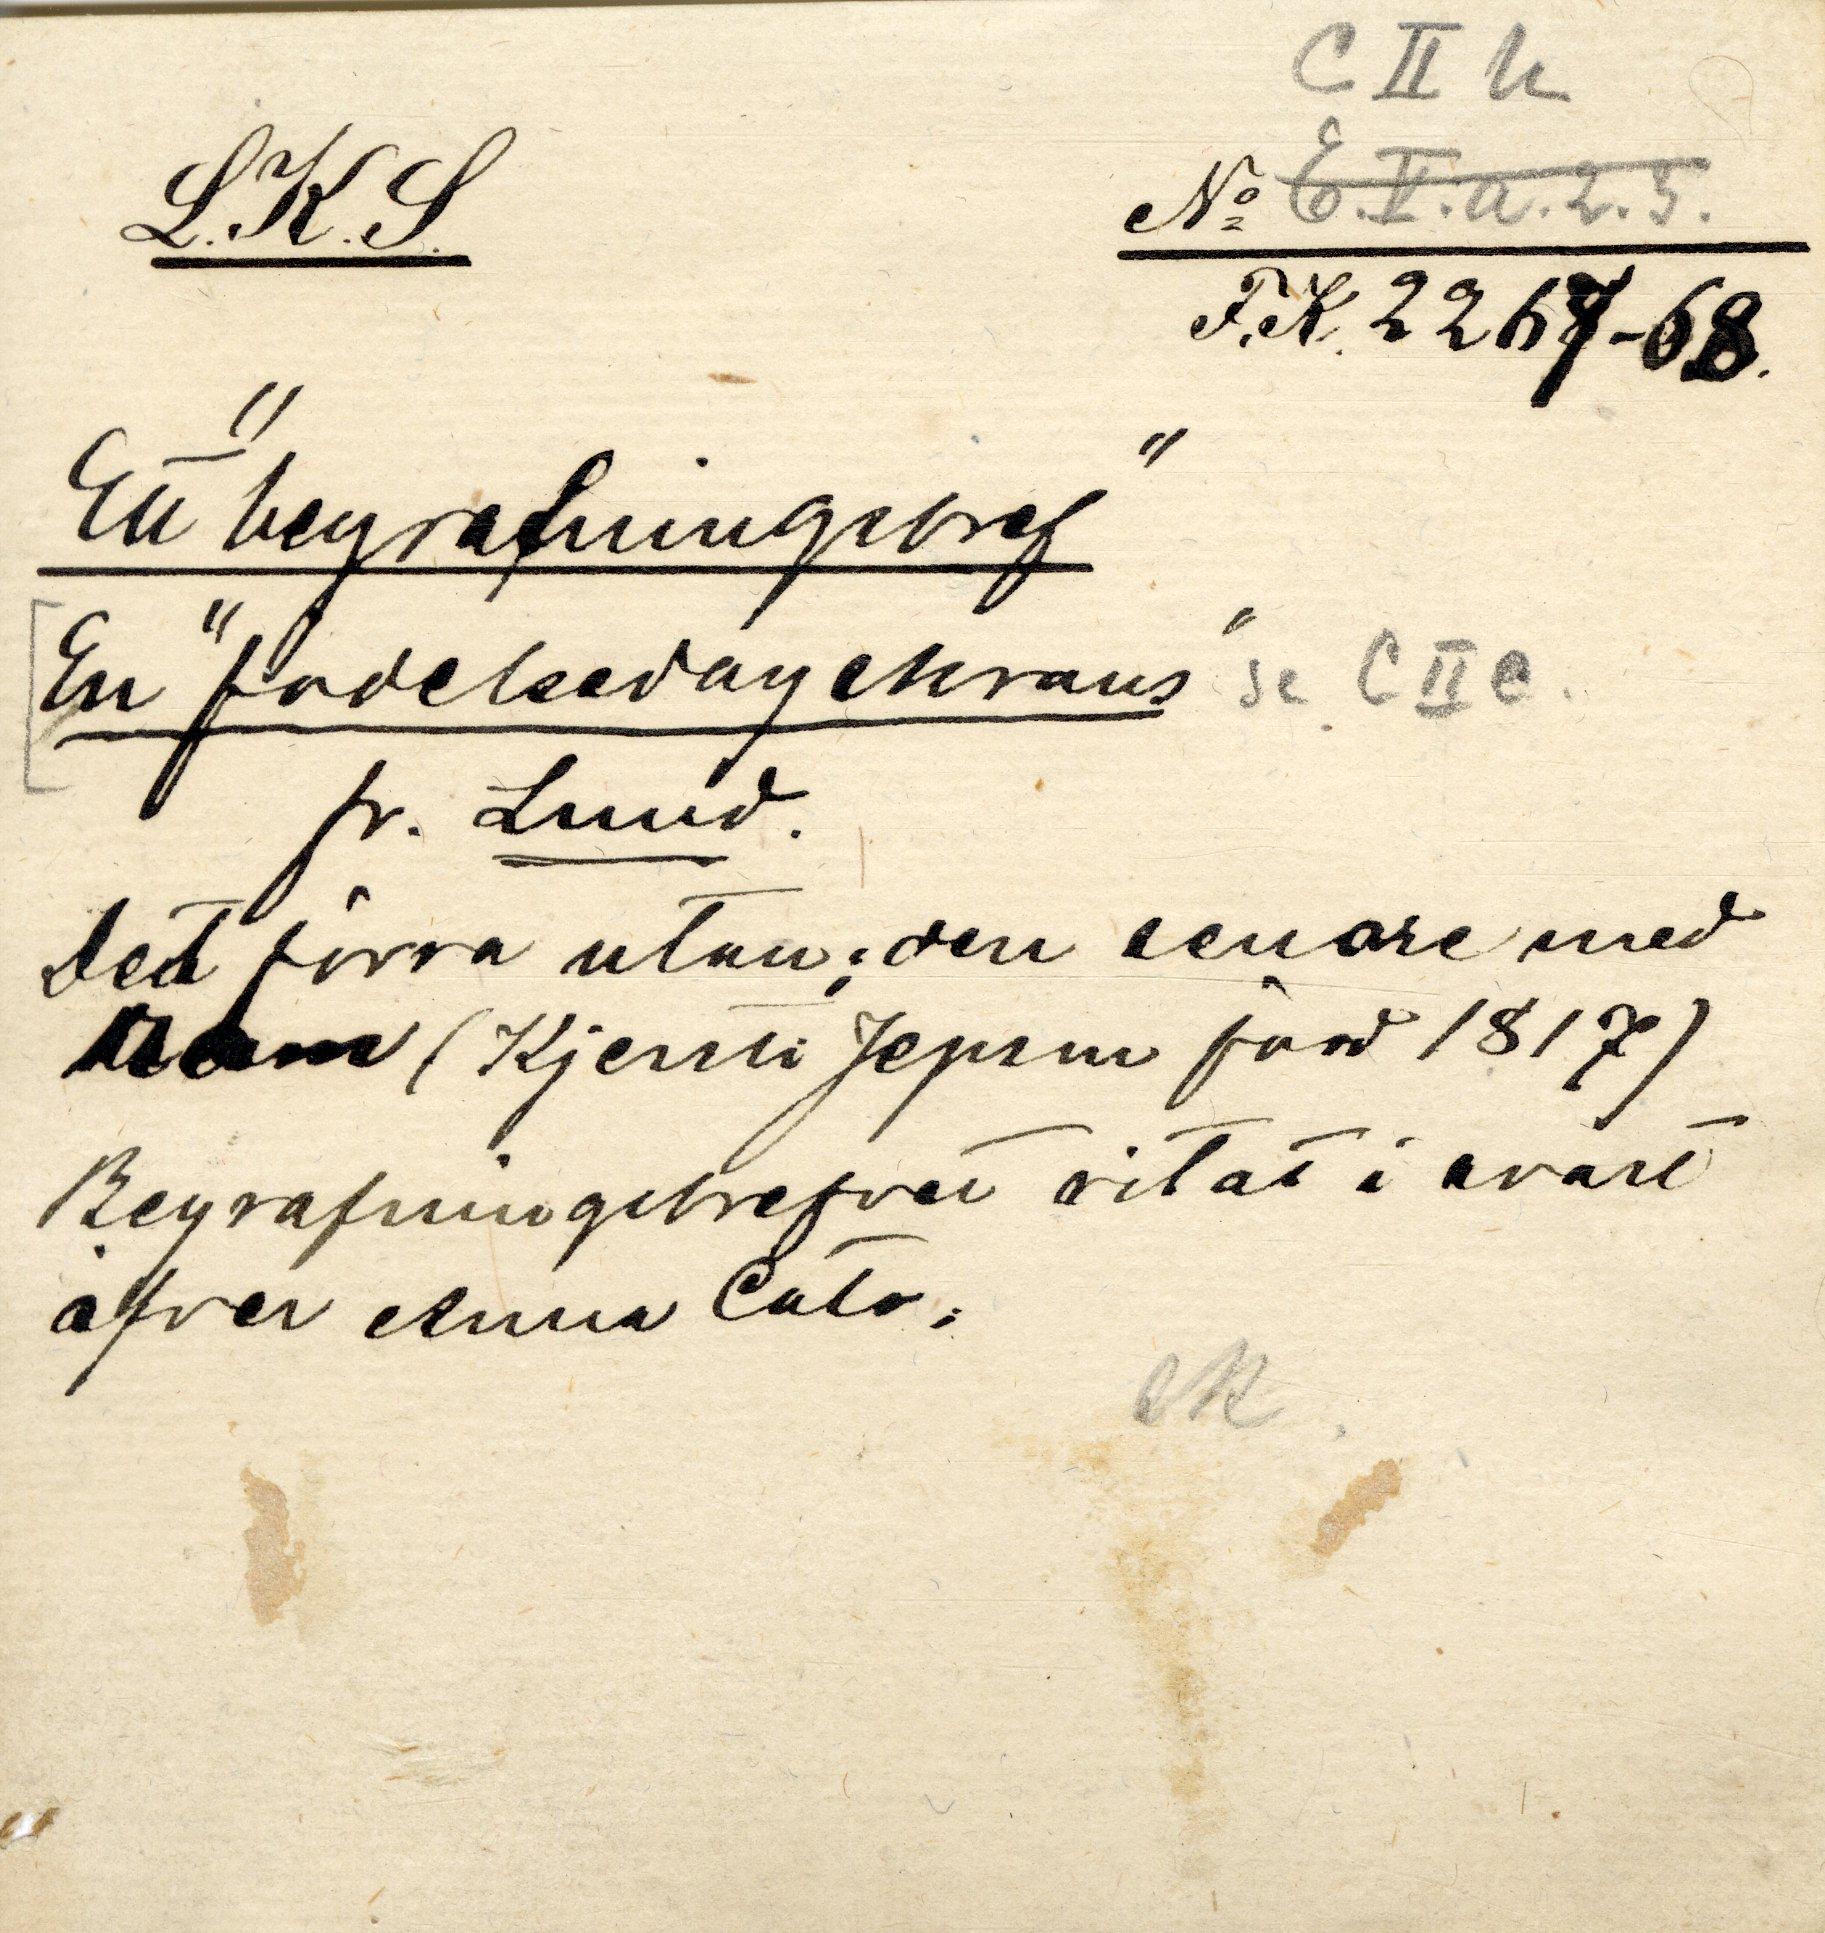 C II h
L.K.S.
No E.V.a.2.5.
F.K. 2267-68.
Ett "begrafningsbref"
En "fodelsedagskrans" se C II e.
fr. Lund.
Det förra utan; den senare med
(Kjersti Jepsen född 1817)
Begrafningsbrefvet ritat i svart
öfver Anna Cato.